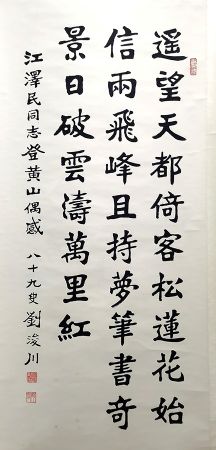 遙望天都倚客松蓮花始
信兩飛峰且持夢筆書奇
景日破雲濤萬里紅
江澤民同志登黃山偶感 八十九叟劉浚川